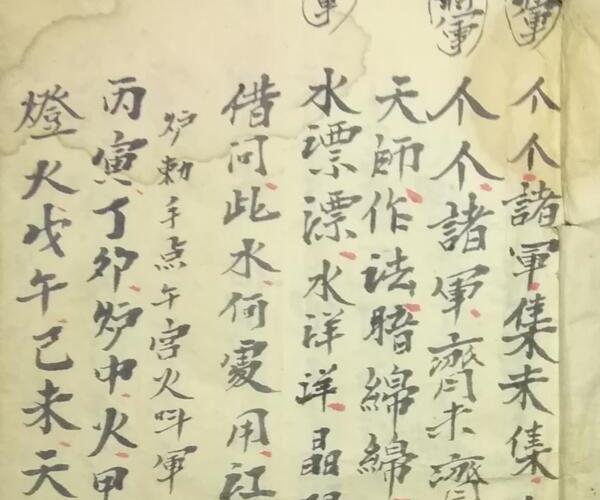 軍
个个諸軍集未集
將軍
个个諸軍濟未濟
天師作法暗綿綿
軍
水漂漂水洋洋晶
借问此水何處用江
炉勅手点午宫火呌軍
丙寅丁卯炉中火甲
燈火戊午己未天